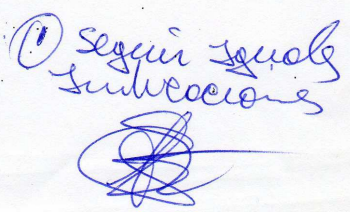 ① Seguir Iguales
Indicaciones